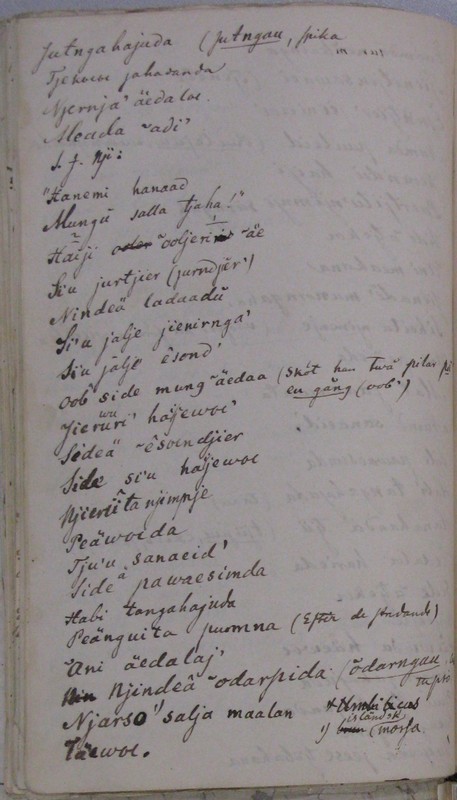 Jutngahajuda (jutngau, spika
Tjekwoi jahadanda
Njernja' äedaloe.
Meada ˜adi'
s. f. Nji:
"Hanemi hanaad
Mungū salla tjaha!"
Häiji ˜ooljeri ˜äe
Si'u jurtjier (jurndjër')
Nindeä ladaadū
Si'u jalje jienirnga'
Si'u jalje êsond'
oob' side mung ˜äedaa (sköt han två pilar på
en gång (oob')
Jieruri' häjewoi'
Sedeä ˜êsoendjier
Side si'u häjewoe
Njieruîta njimpje
Peäwoida
Tju'u sanaeid'
Sideä pawaesimda
Habi tangahajuda
Peänguita puomna (Efter de jordande)
˜Ani äedalaj'
Njindeä ˜odarpida. (˜odarngau
Njarso'' salja maalan * Umbilicus
isländsk
1) (morsa
Täewoe.